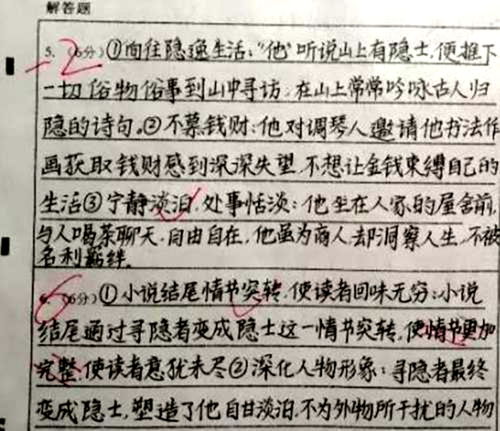 解答题
5. (6分)①向往隐逸生活:“他”听说山上有隐士,便推下
-2
一切俗物俗事到山中寻访,在山上常常吟咏古人归
隐的诗句。②不慕钱财:他对调琴人邀请他书法作
画获取钱财感到深深失望,不想让金钱束缚自己的
生活③宁静淡泊,处事恬淡:他坐在人家的屋舍前,
与人喝茶聊天,自由自在,他虽为商人,却洞察人生,不被
名利羁绊.
6. (6分)①小说结尾情节突转,使读者回味无穷:小说
结尾通过寻隐者变成隐士这一情节突转,使情节更加
完整,使读者意犹未尽②深化人物形象:寻隐者最终
变成隐士,塑造了他自甘淡泊,不为外物所干扰的人物